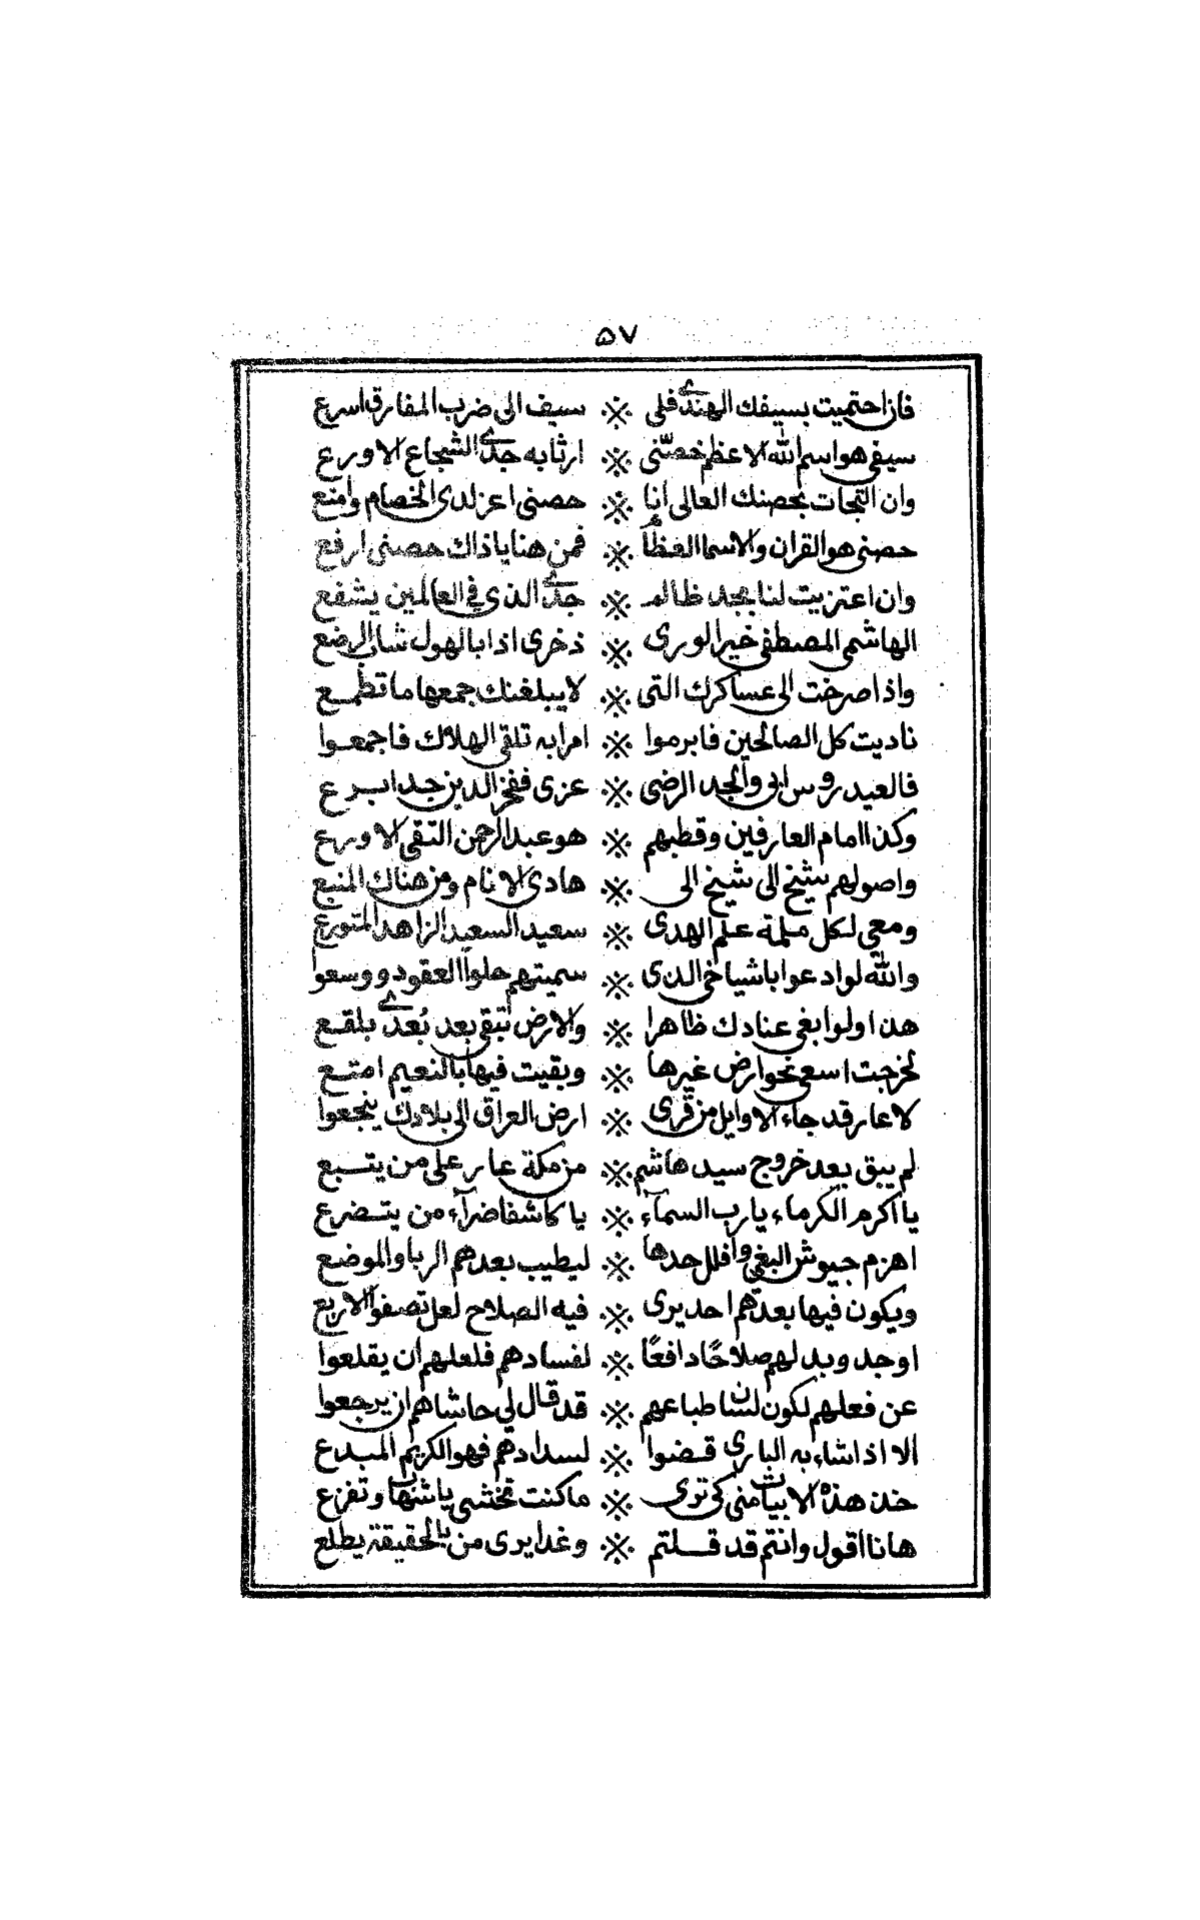 ٥٧
فان احتميت بسيفك الهندي فلي ※ سيف الى ضرب المفارق اسرع
سيفي هو اسم الله الاعظم خصّني ※ ارثا به جدي الشجاع الاورع
وان التجات بحصنك العالي انا ※ حصني اعز لدى الخصام وامنع
حصني هو القران والاسما العظام ※ فمن هنا ياذاك حصني ارفع
وان اعتزيت لنا بجد ظالم ※ جدي الذي في العالمين يشفع
الهاشمي المصطفى خير الورى ※ ذخري اذا بالهول شاب الرضع
واذا صرخت الى عساكرك التى ※ لا يبلغنك جمعها ما تطمع
ناديت كل الصالحين فابرموا ※ امرا به تلقى الهلاك فاجمعوا
فالعيدروس ابي والجد الرضى ※ عزى ففخر الدين جدا ابرع
وكذا امام العارفين وقطبهم ※ هو عبد الرحمن التقي الاورع
واصولهم شيخ الى شيخ الى ※ هادى الانام ومن هناك المنبع
ومعي لكل ملمة علم الهدى ※ سعيد السعيد الزاهد المتورع
والله لو ادعوا باشياخي الذي ※ سميتهم حلوا العقود ووسعوا
هذا ولو ابغي عنادك ظاهرا ※ والارض تبقى بعد بُعدي بلقع
لخرجت اسعى نحو ارض غيرها ※ وبقيت فيها بالنعيم امتع
لا عار قد جاء الاوايل من قرى ※ ارض العراق الى بلادك ينجعوا
لم يبق بعد خروج سيد هاشم ※ من مكة عار على من يتبع
يا اكرم الكرماء يا رب السماء ※ يا كاشفا ضراء من يتضرع
اهزم جيوش البغي وافلل حدها ※ ليطيب بعدهم الربا والموضع
ويكون فيها بعدهم احد يرى ※ فيه الصلاح لعل تصفو الاربع
اوجد وبد لهم صلاحًا دافعًا ※ لفسادهم فلعلهم أن يقلعوا
عن فعلهم لكون لسان طباعهم ※ قد قال لي حاشاهم ان يرجعوا
الا اذا شاء به الباري قضوا ※ لسدادهم فهو الكريم المبدع
خذ هذه الابيات مني كي ترى ※ ما كنت تخشى يا شهاب وتفزع
ها نا اقول وانتم قد قلتم ※ وغدا يرى من بالحقيقة يطلع